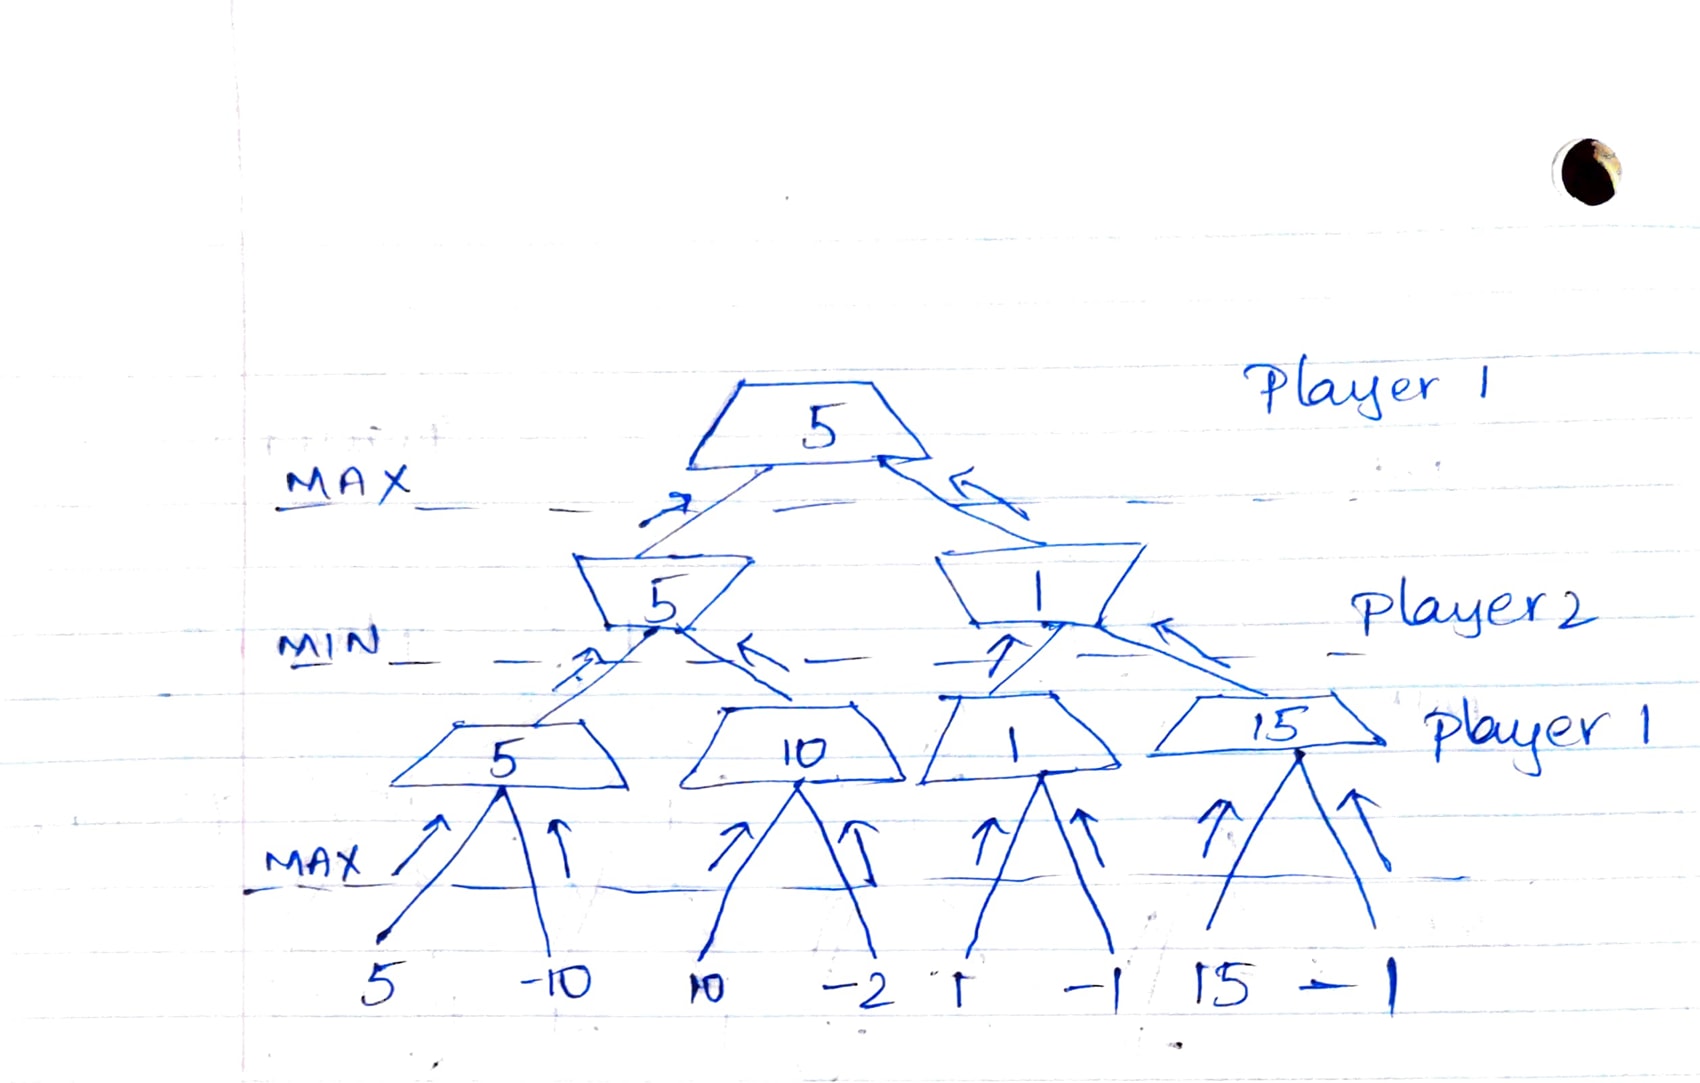 Player 1
5
MAX
5 1 Player 2
MIN
5 10 1 15 Player 1
MAX
5 -10 10 -2 1 -1 15 -1